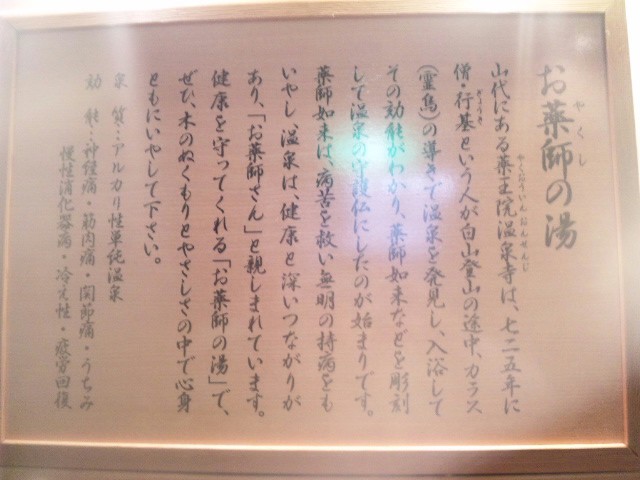 お薬師の湯
やくし
山代にある薬王院温泉寺は、七二五年に
やくおういんおんせんじ
僧・行基という人が白山登山の途中、カラス
ぎょうき
(霊鳥)の導きで温泉を発見し、入浴して
その効能がわかり、薬師如来などを彫刻
して温泉の守護仏にしたのが始まりです。
薬師如来は、病苦を救い無明の持病をも
いやし、温泉は、健康と深いつながりが
あり、「お薬師さん」と親しまれています。
健康を守ってくれる「お薬師の湯」で、
ぜひ、木のぬくもりとやさしさの中で心身
ともにいやして下さい。
泉質…アルカリ性単純温泉
効能…神経痛・筋肉痛・関節痛・うちみ
慢性消化器病・冷え性・疲労回復